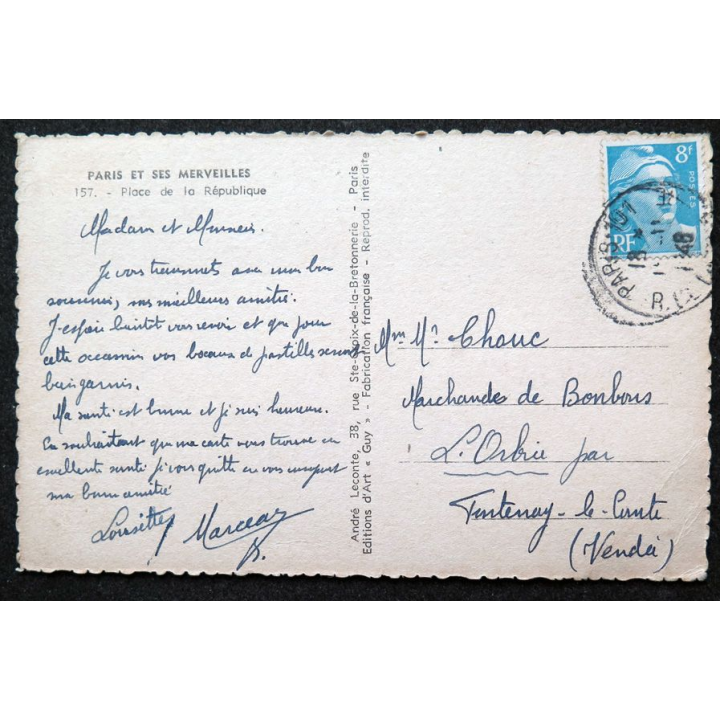 PARIS ET SES MERVEILLES
157. - Place de la République
Madame et Monsieur.
Je vous transmets avec mon bon
souvenir, mes meilleures amitiés.
J'espère bientôt vous revoir et que pour
cette occasion vos bocaux de pastilles seront
bien garnis.
Ma santé est bonne et je suis heureuse.
En souhaitant que ma carte vous trouve en
excellente santé je vous quitte en vous envoyant
ma bonne amitié
Louisette Marceau
André Leconte, 38, rue Ste-Croix-de-la-Bretonnerie - Paris
Editions d'Art « Guy » - Fabrication française - Reprod. interdite
8f
POSTES
RF
PARIS
18
R.
Mme Mr Chauc
Marchandes de Bonbons
L'Orbrie par
Fontenay-le-Comte
(Vendée)